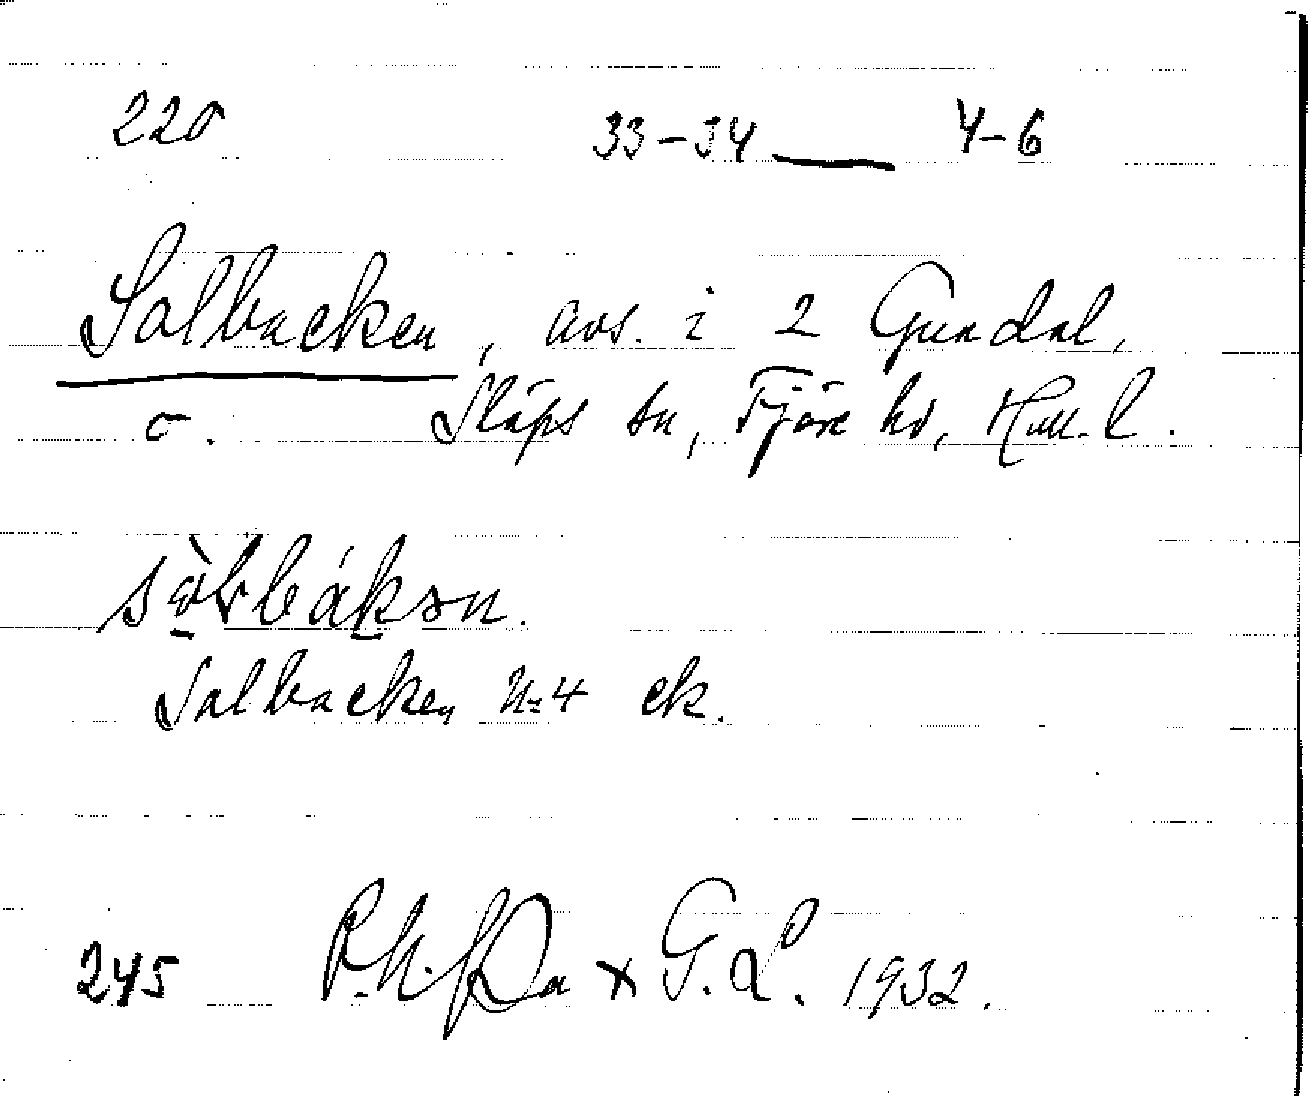 220 33-34 — 4-6
Solbacken, avs. i 2 Gundal,
σ. Släps sn, Fjäre hd, Hall. l.
Solbacken n=4 ek.
245 G.L. 1932.